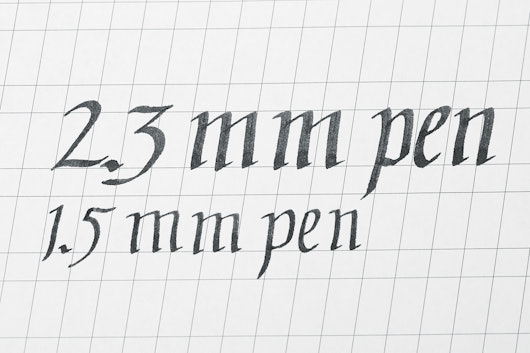 2.3 mm pen
1.5 mm pen